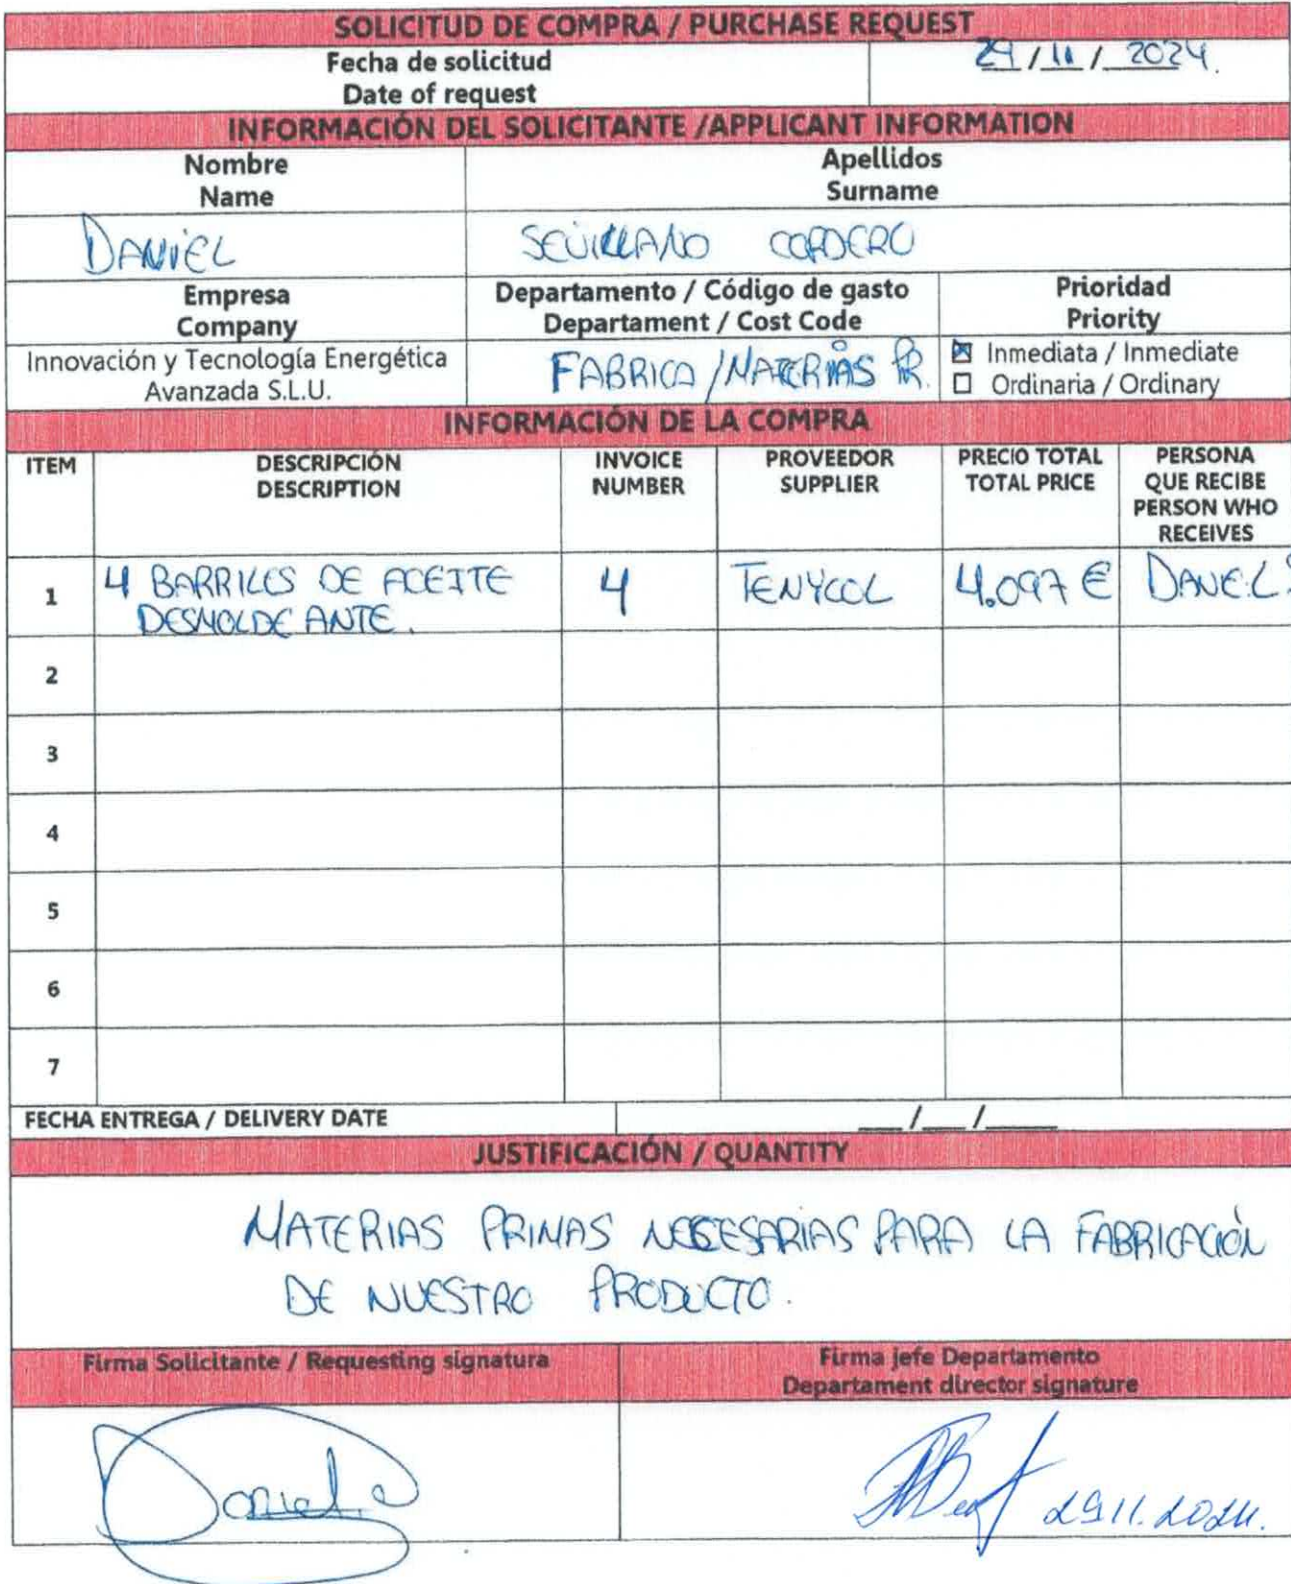 SOLICITUD DE COMPRA / PURCHASE REQUEST
Fecha de solicitud
Date of request
29 / 11 / 2024.
INFORMACIÓN DEL SOLICITANTE /APPLICANT INFORMATION
Nombre
Name
Apellidos
Surname
DANIEL
SEVILLANO CORDERO
Empresa
Company
Departamento / Código de gasto
Departament / Cost Code
Prioridad
Priority
Innovación y Tecnología Energética
Avanzada S.L.U.
FABRICA / MATERIAS PR.
☒ Inmediata / Inmediate
☐ Ordinaria / Ordinary
INFORMACIÓN DE LA COMPRA
ITEM
DESCRIPCIÓN
DESCRIPTION
INVOICE
NUMBER
PROVEEDOR
SUPPLIER
PRECIO TOTAL
TOTAL PRICE
PERSONA
QUE RECIBE
PERSON WHO
RECEIVES
1
4 BARRILES DE ACEITE
DESMOLDEANTE.
4
TENYCOL
4.097 €
DANIEL
2
3
4
5
6
7
FECHA ENTREGA / DELIVERY DATE
__ / __ / ____
JUSTIFICACIÓN / QUANTITY
MATERIAS PRIMAS NECESARIAS PARA LA FABRICACIÓN
DE NUESTRO PRODUCTO.
Firma Solicitante / Requesting signatura
Firma jefe Departamento
Departament director signature
Daniel
29.11.2024.